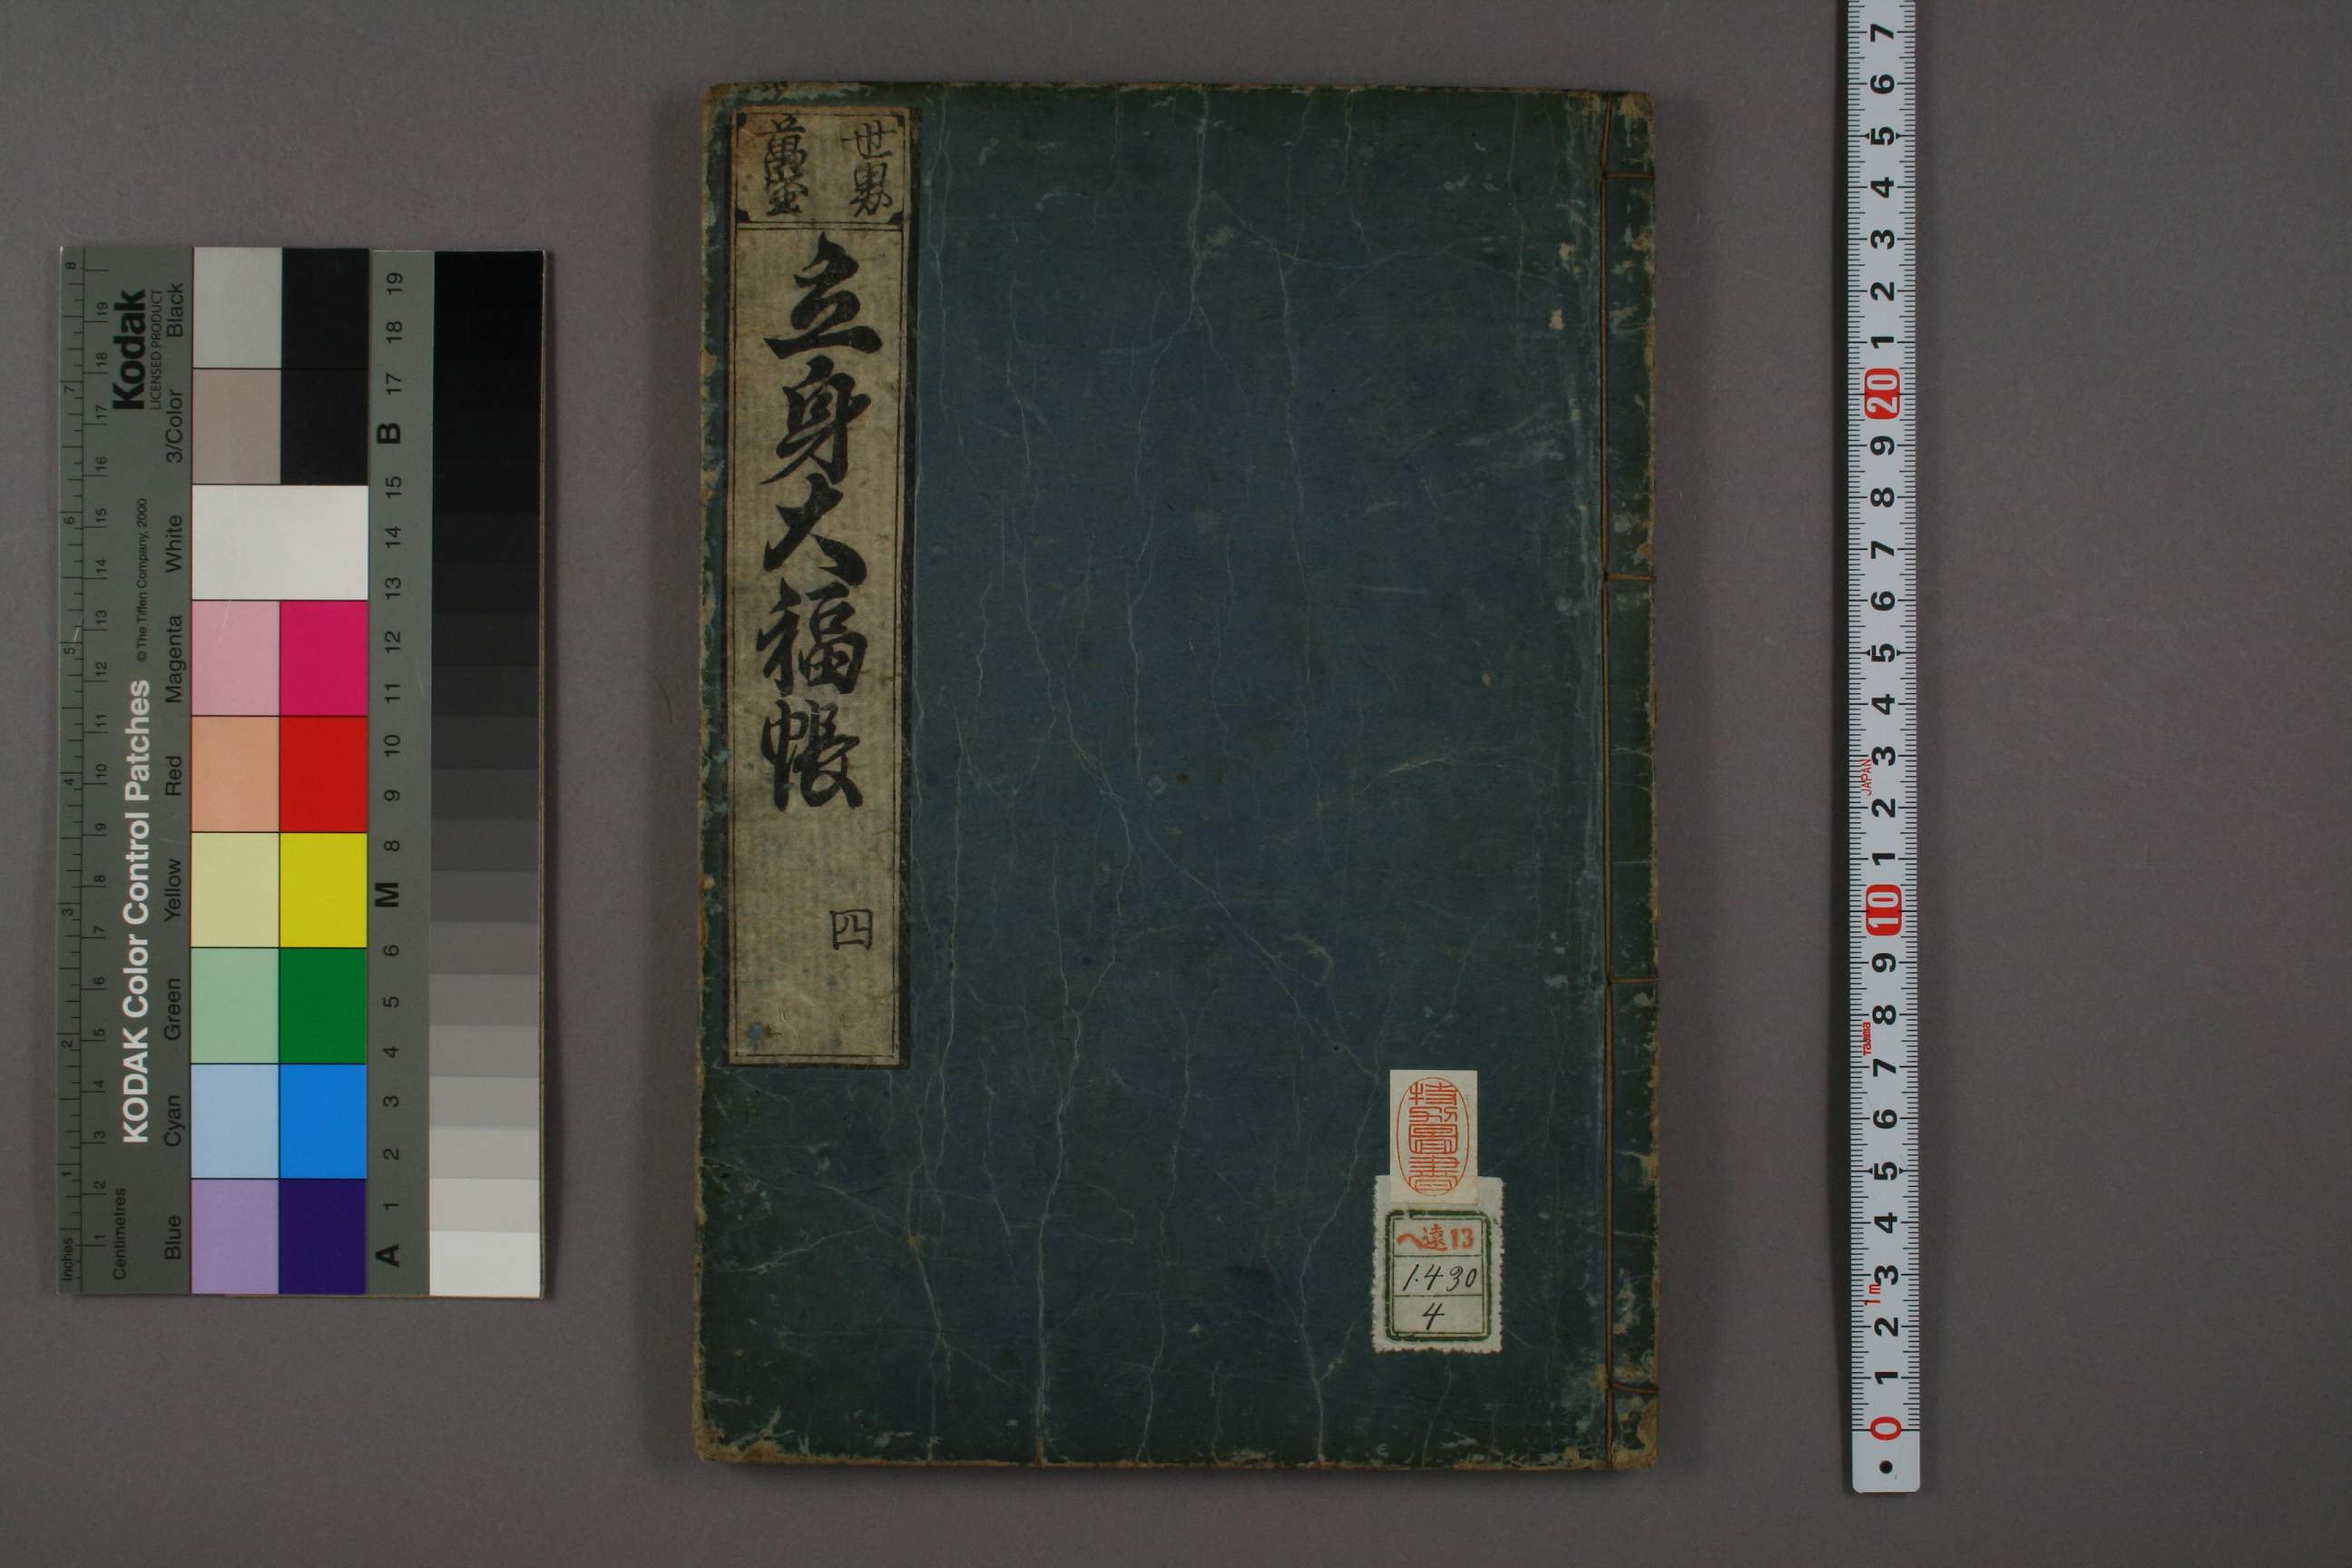 世界
萬寳
立身大福帳
四
特別圖書
ヘ遠13
1.430
4
Kodak
LICENSED PRODUCT
KODAK Color Control Patches
© The Tiffen Company, 2000
Blue Cyan Green Yellow Red Magenta White 3/Color Black
Inches
1 2 3 4 5 6 7 8
Centimetres
1 2 3 4 5 6 7 8 9 10 11 12 13 14 15 16 17 18 19
A 1 2 3 4 5 6 M 8 9 10 11 12 13 14 15 B 17 18 19
0 1 2 3 4 5 6 7 8 9 10 1 2 3 4 5 6 7 8 9 20 1 2 3 4 5 6 7
1m
Tajima
JAPAN